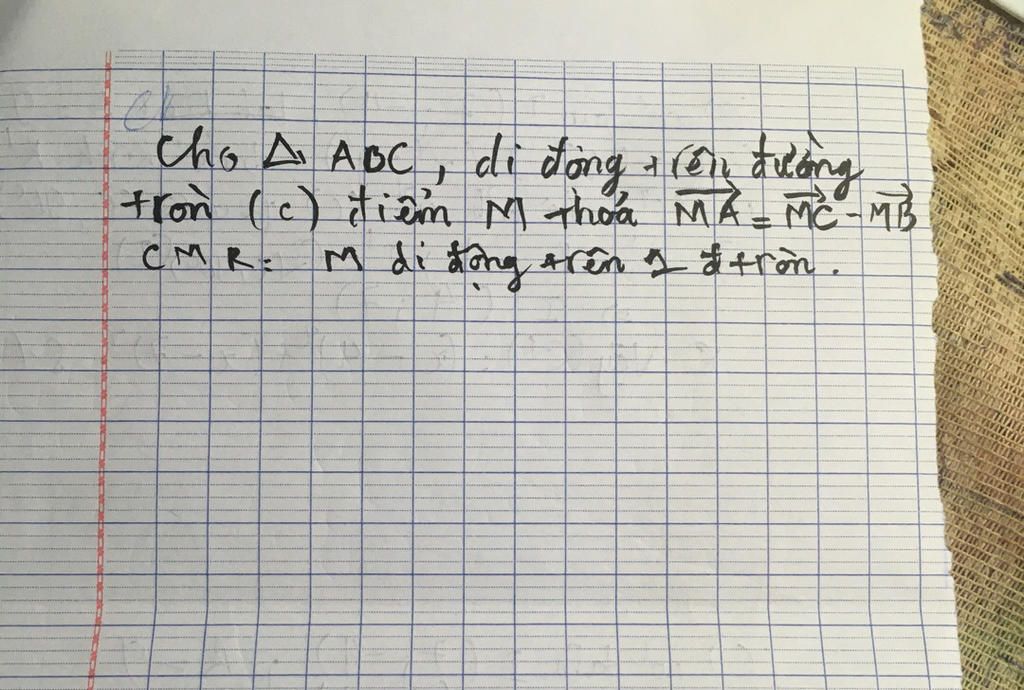 Cho Δ ABC, di động trên đường
tròn (c) điểm M thoả MA = MC - MB
CMR: M di động trên 1 đtròn.